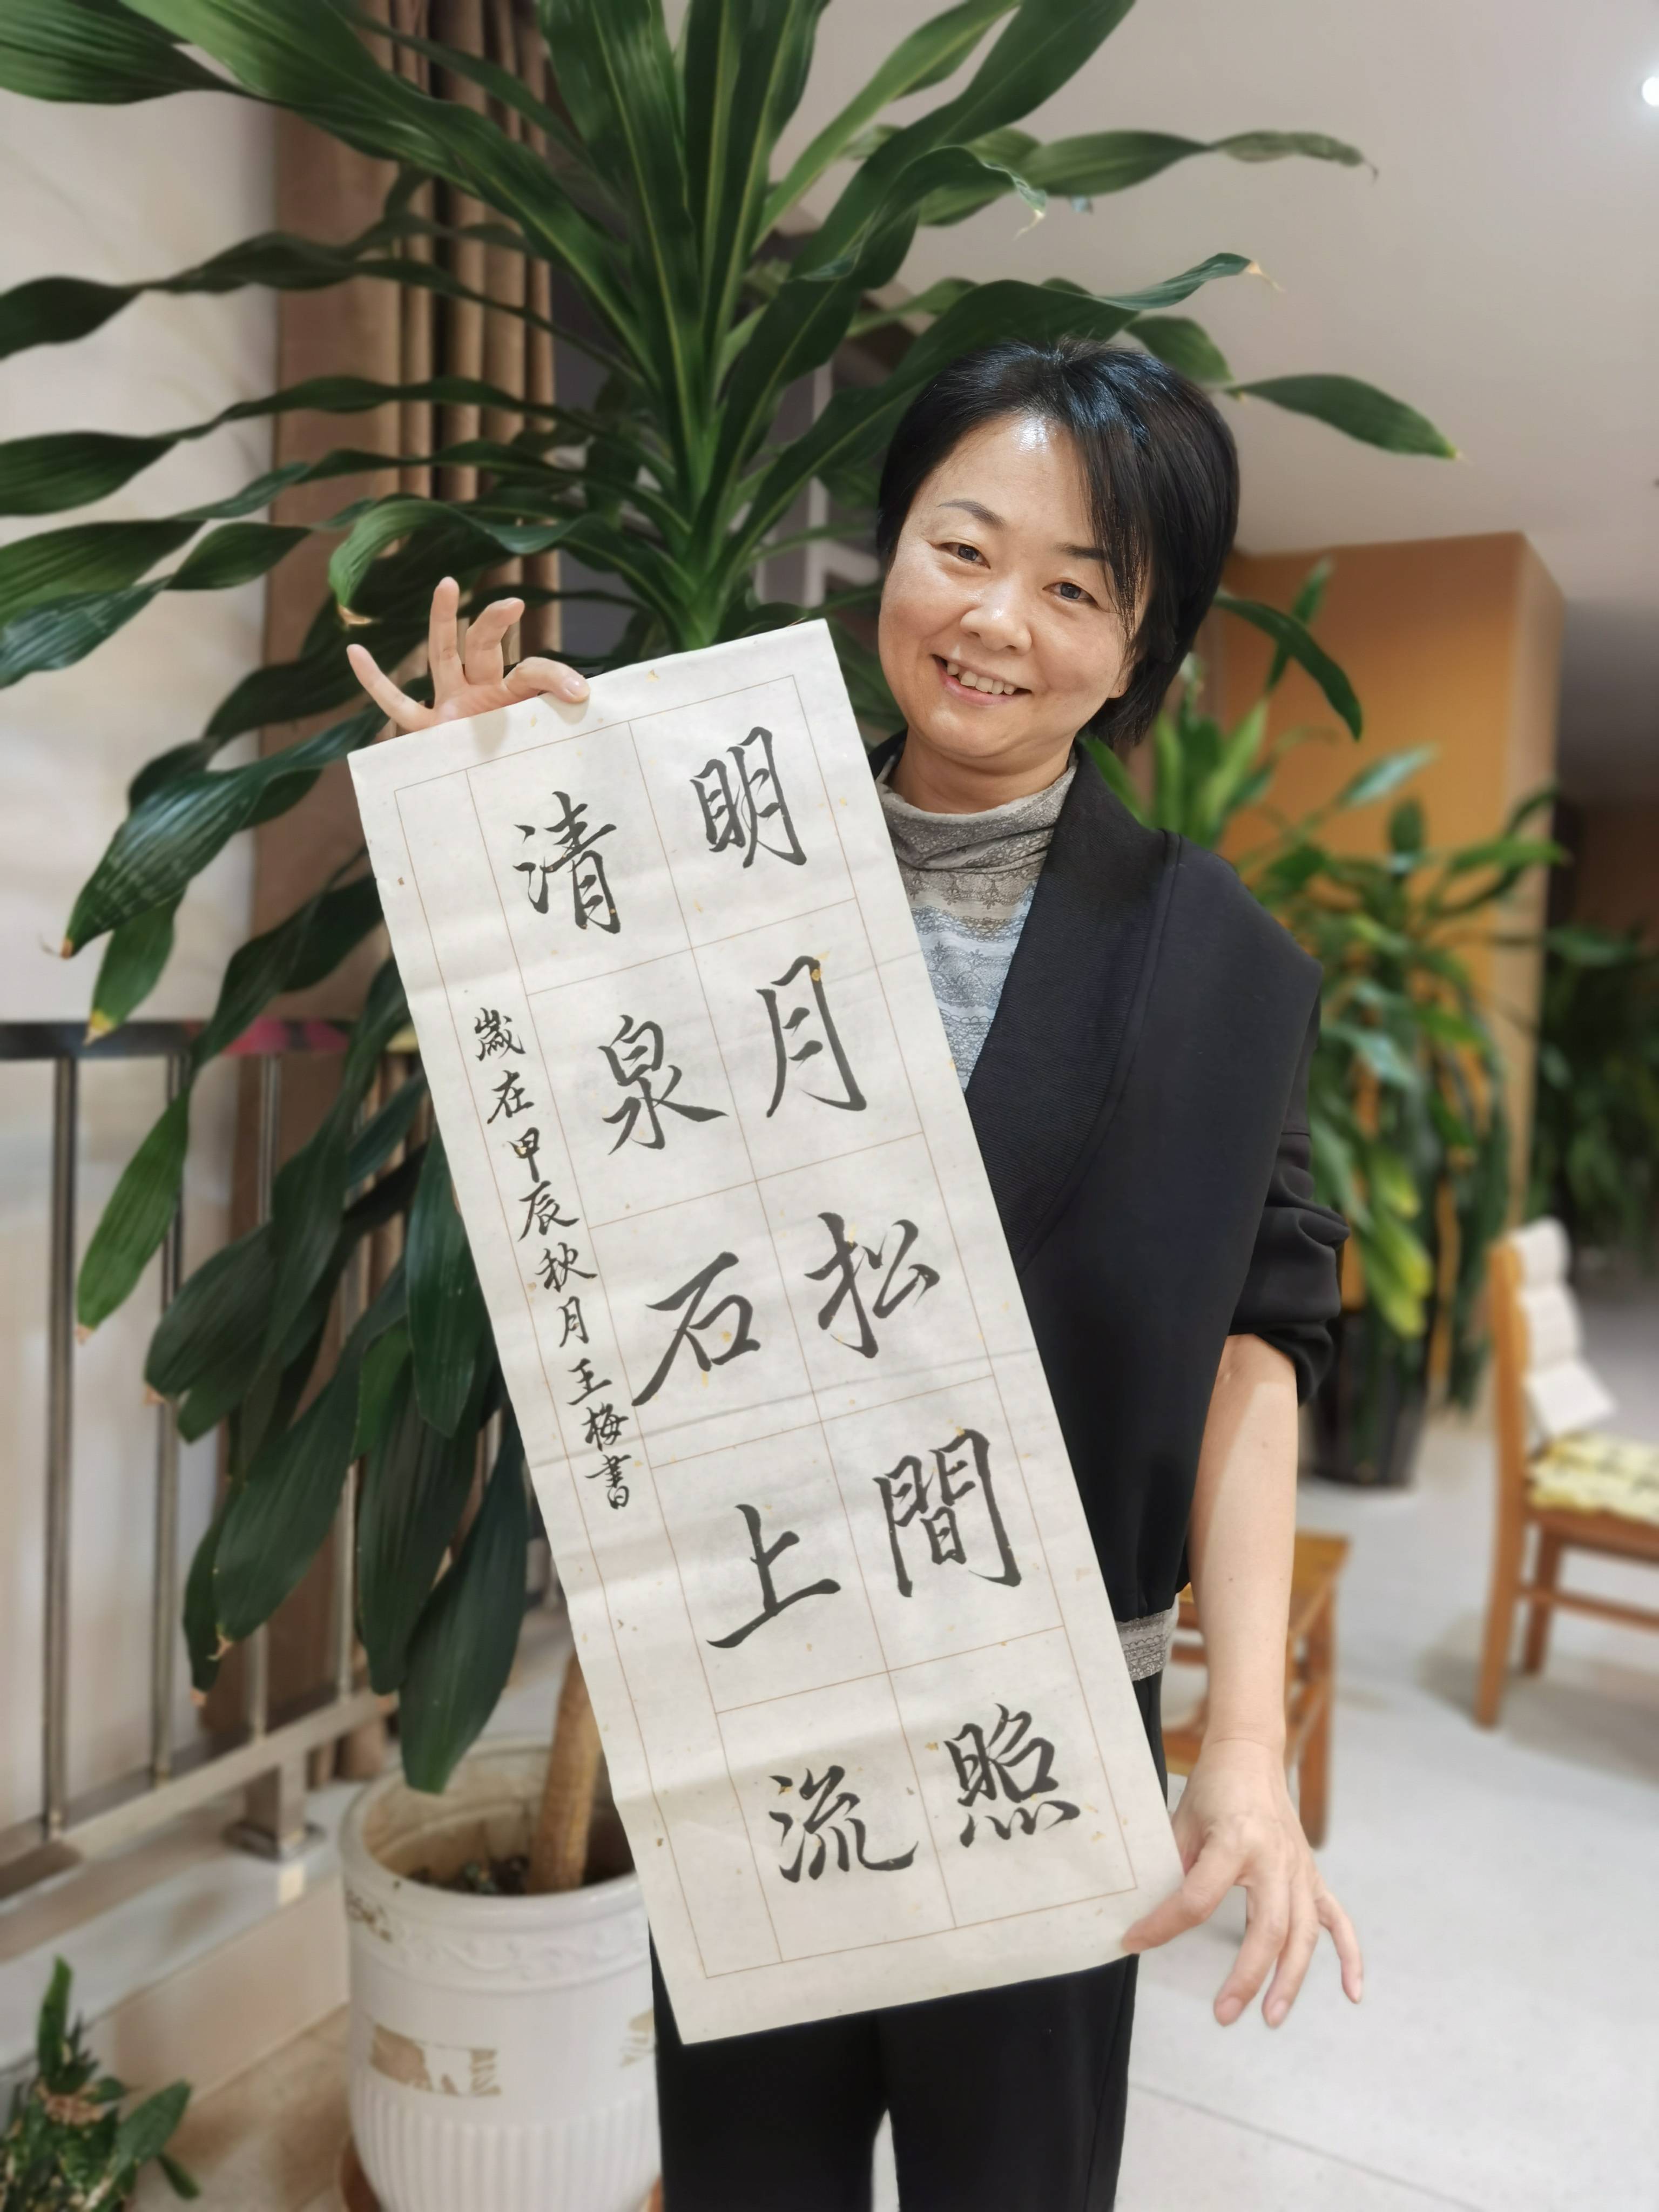 明月松間照
清泉石上流
歲在甲辰秋月王梅書